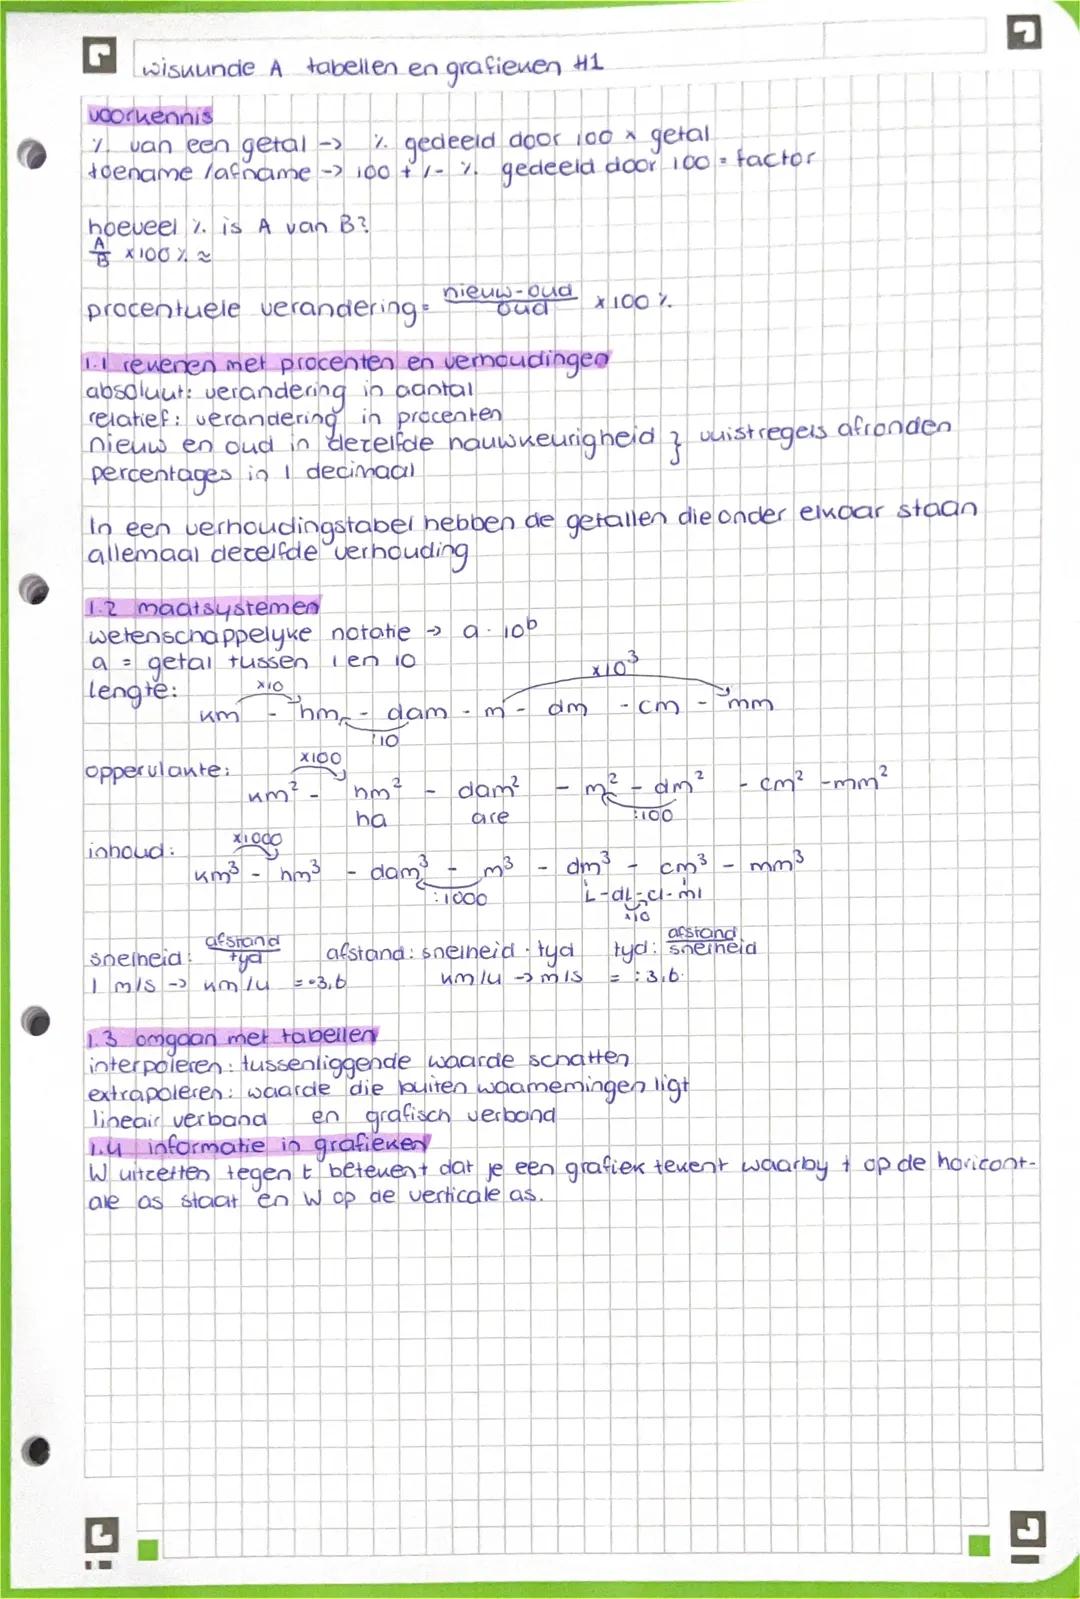 wiskunde A tabellen en grafieken H1
voorkennis
% van een getal -> % gedeeld door 100 x getal
toename /afname -> 100 +/- % gedeeld door 100 = factor
hoeveel % is A van B?
A/B x100% ≈
procentuele verandering = nieuw-oud/oud x100%
1.1 rekenen met procenten en verhoudingen
absoluut: verandering in aantal
relatief: verandering in procenten
nieuw en oud in dezelfde nauwkeurigheid } vuistregels afronden
percentages in 1 decimaal
In een verhoudingstabel hebben de getallen die onder elkaar staan
allemaal dezelfde verhouding
1.2 maatsystemen
wetenschappelyke notatie -> a · 10^b
a = getal tussen 1 en 10
x10³
lengte: x10
km - hm - dam - m - dm - cm - mm
:10
oppervlakte: x100
km² - hm² - dam² - m² - dm² - cm² - mm²
ha are :100
inhoud: x1000
km³ - hm³ - dam³ - m³ - dm³ - cm³ - mm³
:1000 L-dL-cl-ml
x10
snelheid: afstand/tyd afstand: snelheid · tyd tyd: afstand/snelheid
1 m/s -> km/u = ·3,6 km/u -> m/s = :3,6
1.3 omgaan met tabellen
interpoleren: tussenliggende waarde schatten
extrapoleren: waarde die buiten waarnemingen ligt
lineair verband en grafisch verband
1.4 informatie in grafieken
W uitzetten tegen t betekent dat je een grafiek tekent waarby t op de horizont-
ale as staat en W op de verticale as.